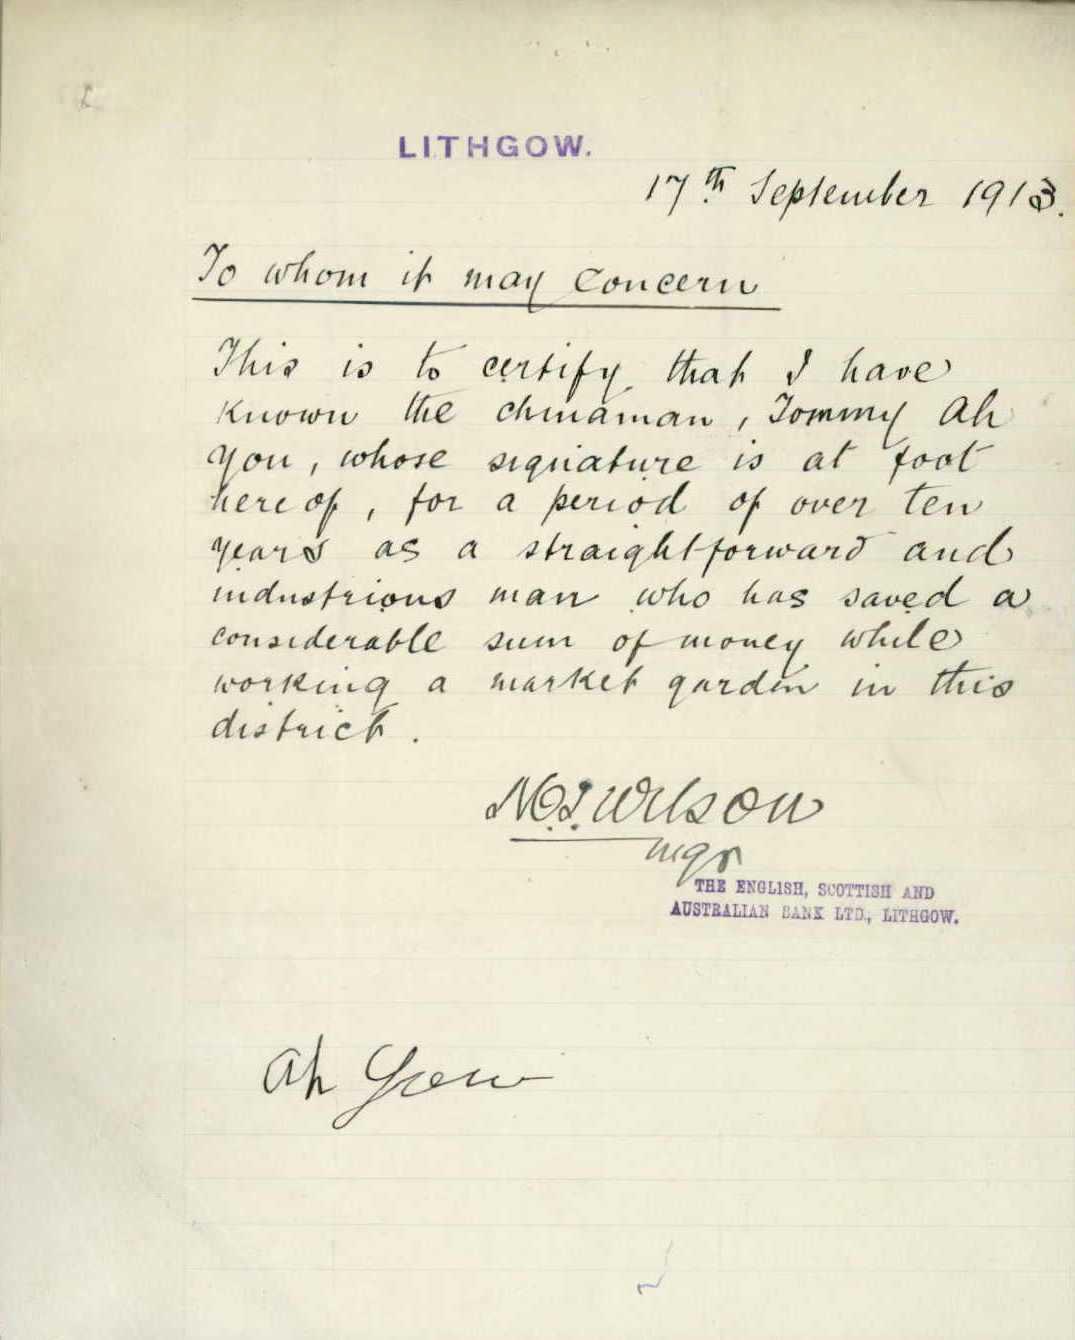 LITHGOW.
17th September 1913.
To whom it may concern
This is to certify that I have
known the chinaman, Tommy Ah
You, whose signature is at foot
hereof, for a period of over ten
years as a straightforward and
industrious man who has saved a
considerable sum of money while
working a market garden in this
district.
Wilson
mgr
THE ENGLISH, SCOTTISH AND
AUSTRALIAN BANK LTD., LITHGOW.
Ah You